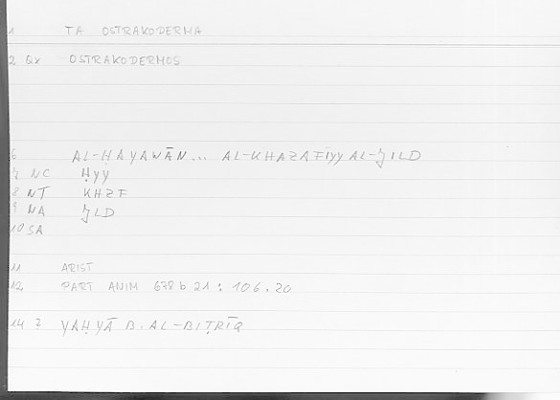 1 TA OSTRAKODERMA
2 Qx OSTRAKODERMOS
6 AL-ḤAYAWĀN... AL-KHAZAFĪYY AL-ǦILD
7 NC ḤYY
8 NT KHZF
9 NA ǦLD
10 SA
11 ARIST
12 PART ANIM 678 b 21 : 106.20
14 2 YAḤYĀ B. AL-BIṬRĪQ